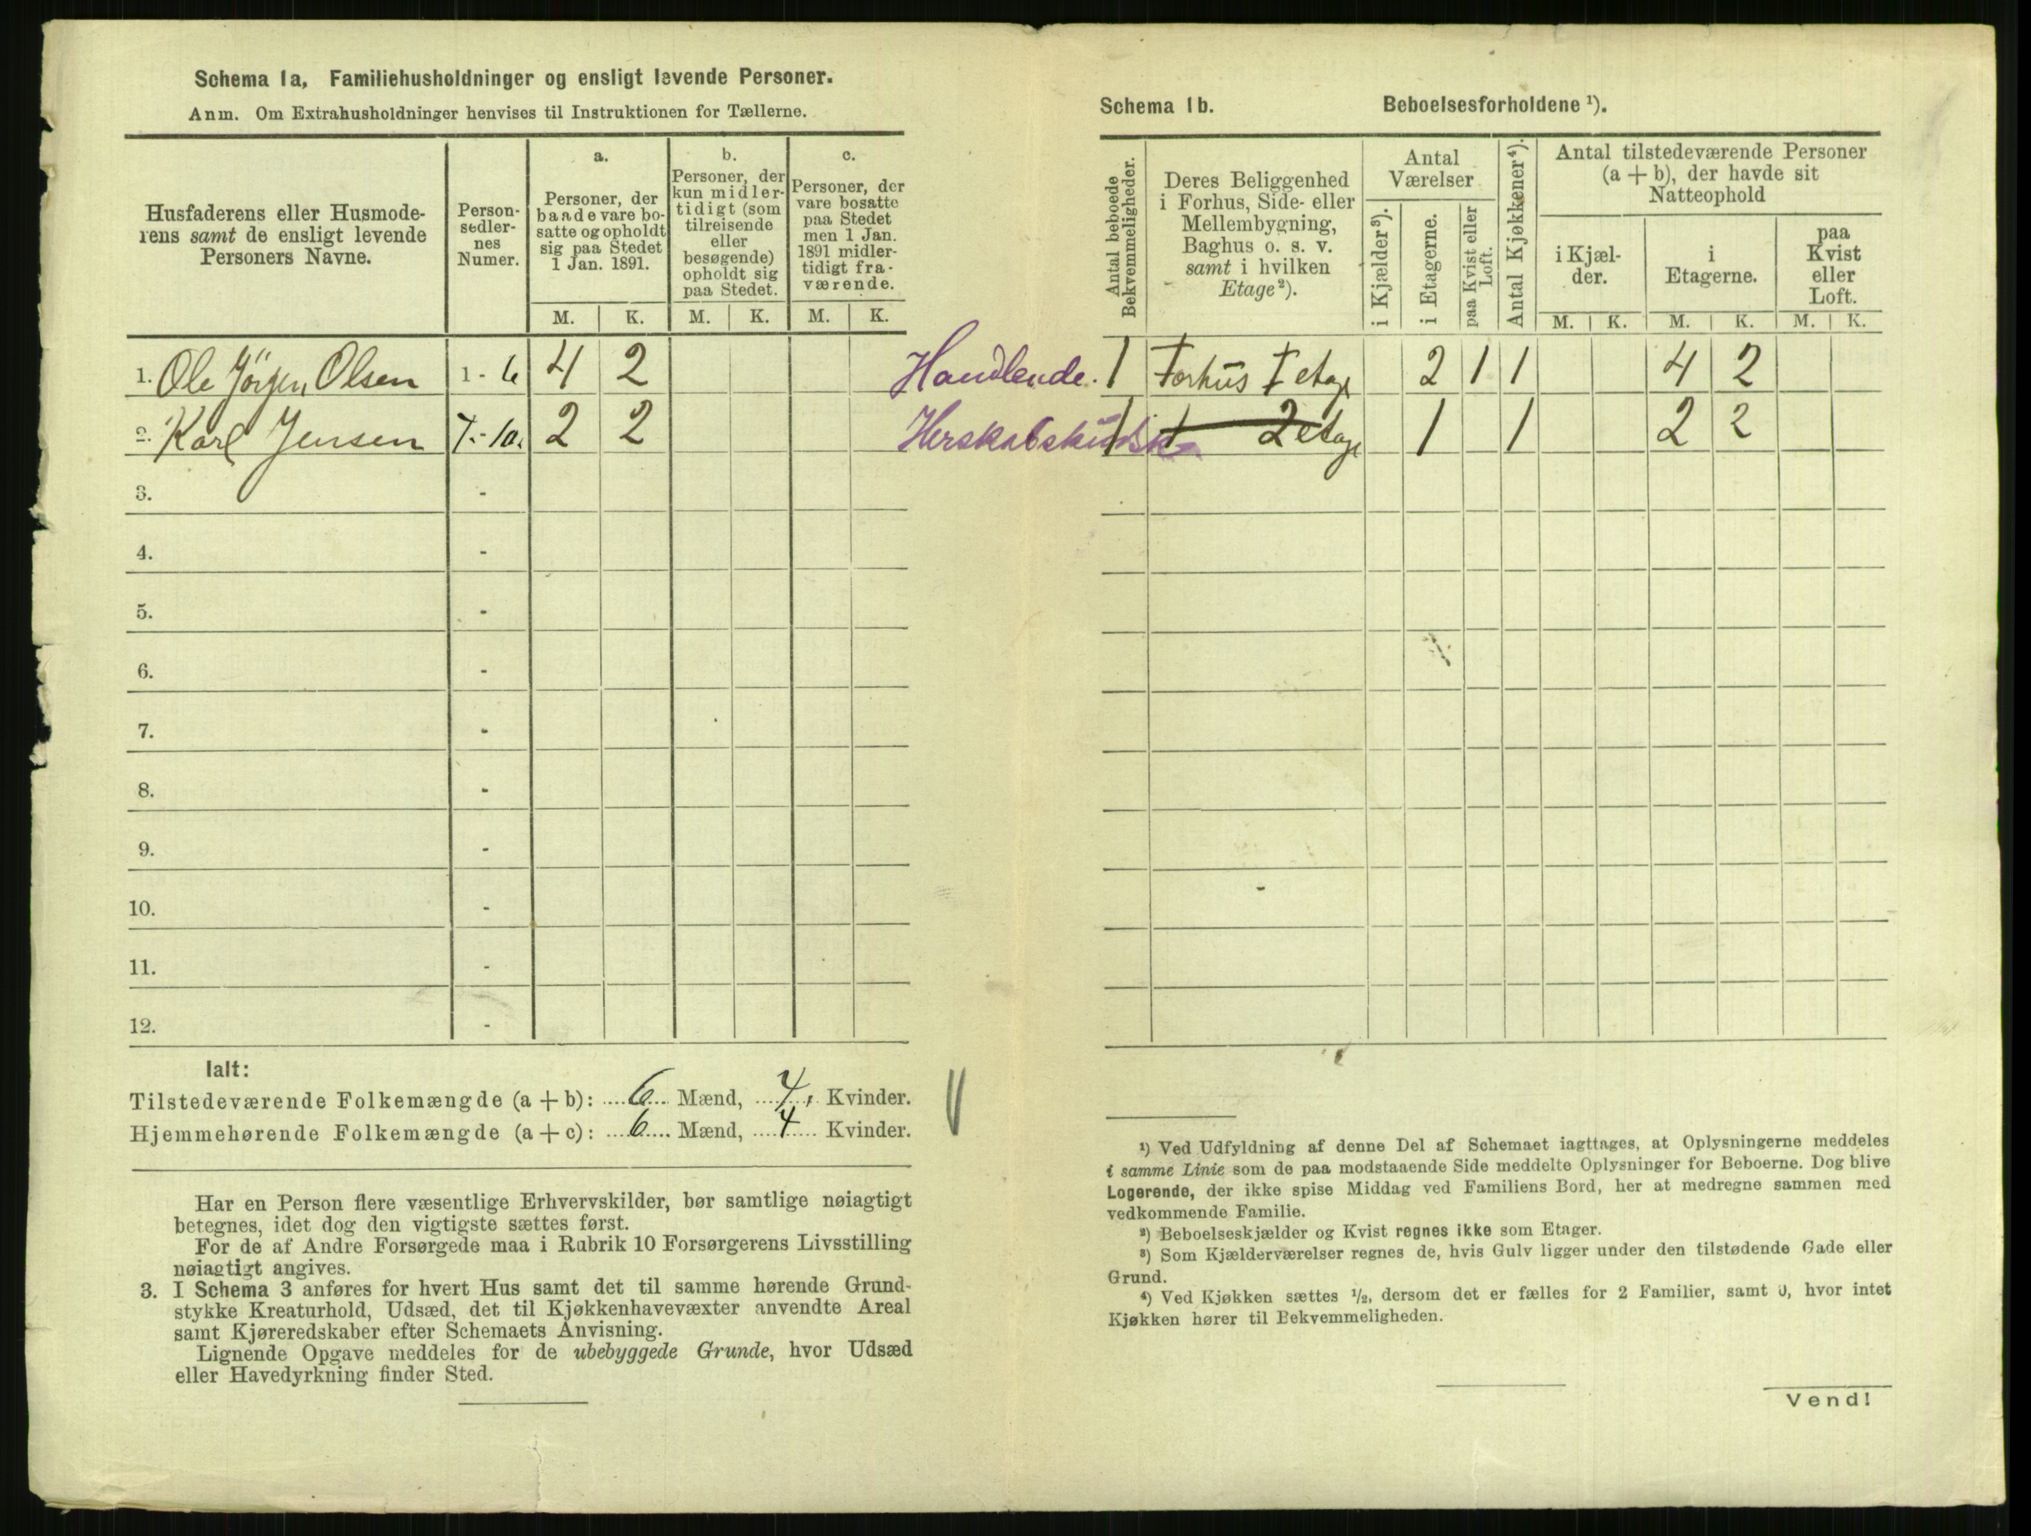 Schema 1a, Familiehusholdninger og ensligt levende Personer.
Anm. Om Extrahusholdninger henvises til Instruktionen for Tællerne.
Husfaderens eller Husmode-
rens samt de ensligt levende
Personers Navne.
Person-
sedler-
nes
Numer.
a.
Personer, der
baade vare bo-
satte og opholdt
sig paa Stedet
1 Jan. 1891.
b.
Personer, der
kun midler-
tidigt (som
tilreisende
eller
besøgende)
opholdt sig
paa Stedet.
c.
Personer, der
vare bosatte
paa Stedet
men 1 Jan.
1891 midler-
tidigt fra-
værende.
M. K. M. K. M. K.
1. Ole Jörgen Olsen 1 - 6 4 2
2. Karl Jensen 7 - 10. 2 2
3. -
4. -
5. -
6. -
7. -
8. -
9. -
10. -
11. -
12. -
Ialt:
Tilstedeværende Folkemængde (a + b): 6 Mænd, 4, Kvinder.
Hjemmehørende Folkemængde (a + c): 6 Mænd, 4 Kvinder.
Har en Person flere væsentlige Erhvervskilder, bør samtlige nøiagtigt
betegnes, idet dog den vigtigste sættes først.
For de af Andre Forsørgede maa i Rubrik 10 Forsørgerens Livsstilling
nøiagtigt angives.
3. I Schema 3 anføres for hvert Hus samt det til samme hørende Grund-
stykke Kreaturhold, Udsæd, det til Kjøkkenhavevæxter anvendte Areal
samt Kjøreredskaber efter Schemaets Anvisning.
Lignende Opgave meddeles for de ubebyggede Grunde, hvor Udsæd
eller Havedyrkning finder Sted.
Schema 1b. Beboelsesforholdene ¹).
Antal beboede
Bekvemmeligheder.
Deres Beliggenhed
i Forhus, Side- eller
Mellembygning,
Baghus o. s. v.
samt i hvilken
Etage²).
Antal
Værelser
i Kjælder³).
i Etagerne.
paa Kvist eller
Loft.
Antal Kjøkkener⁴).
Antal tilstedeværende Personer
(a + b), der havde sit
Natteophold
i Kjæl-
der.
i
Etagerne.
paa
Kvist
eller
Loft.
M. K. M. K. M. K.
Handlende. 1 Forhus I etage 2 1 1 4 2
1 2 etage 1 1 2 2
¹) Ved Udfyldning af denne Del af Schemaet iagttages, at Oplysningerne meddeles
i samme Linie som de paa modstaaende Side meddelte Oplysninger for Beboerne. Dog blive
Logerende, der ikke spise Middag ved Familiens Bord, her at medregne sammen med
vedkommende Familie.
²) Beboelseskjælder og Kvist regnes ikke som Etager.
³) Som Kjælderværelser regnes de, hvis Gulv ligger under den tilstødende Gade eller
Grund.
⁴) Ved Kjøkken sættes ½, dersom det er fælles for 2 Familier, samt 0, hvor intet
Kjøkken hører til Bekvemmeligheden.
Vend!